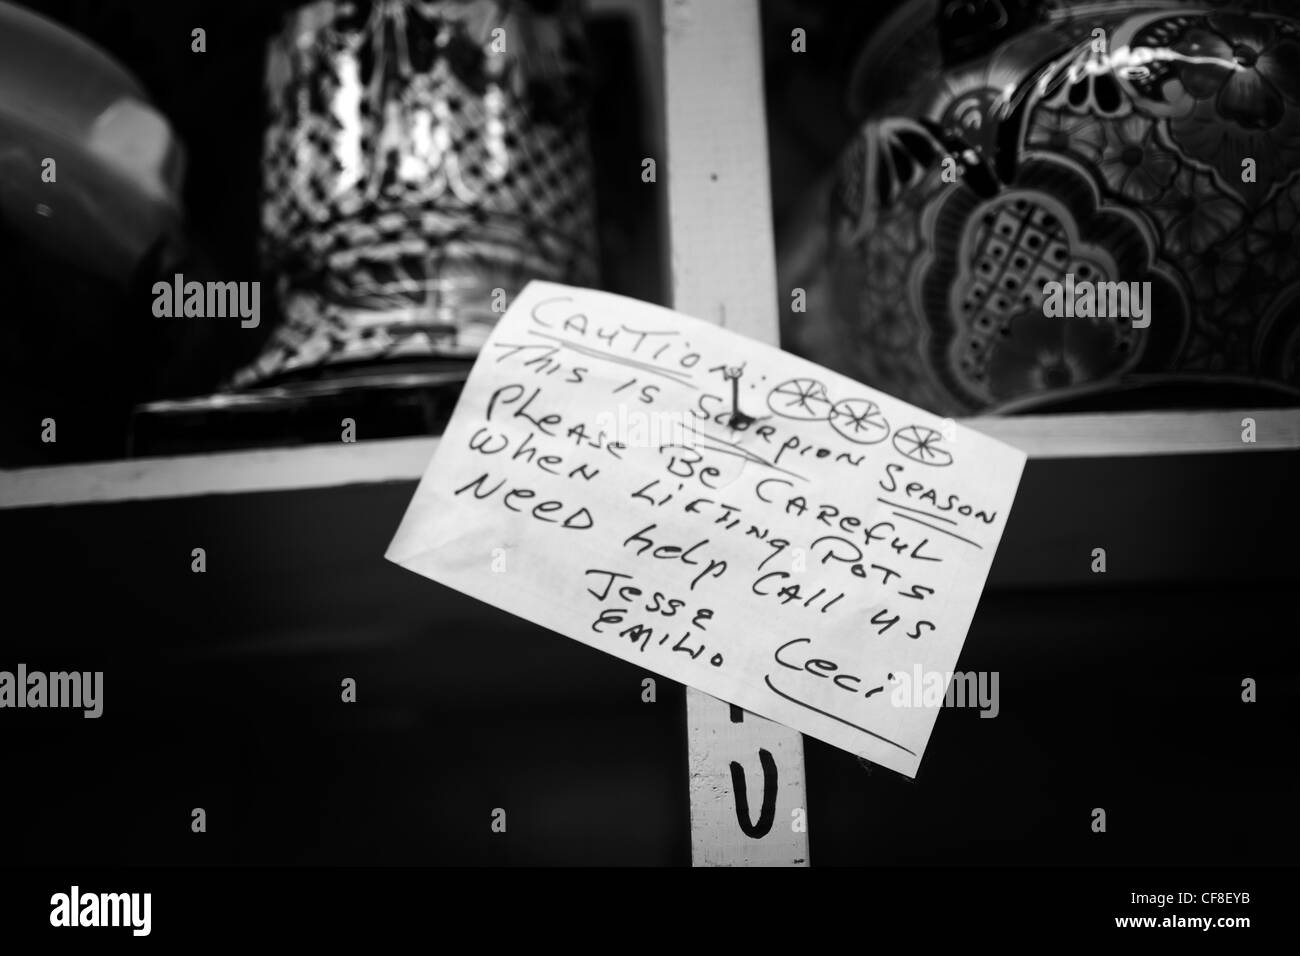 CAUTION:
THIS IS SCORPION SEASON
PLEASE BE CAREFUL
WHEN LIFTING POTS
NEED help CALL US
Jesse Ceci
EMILIO.
U
alamy
a
Image ID: CF8EYB
www.alamy.com